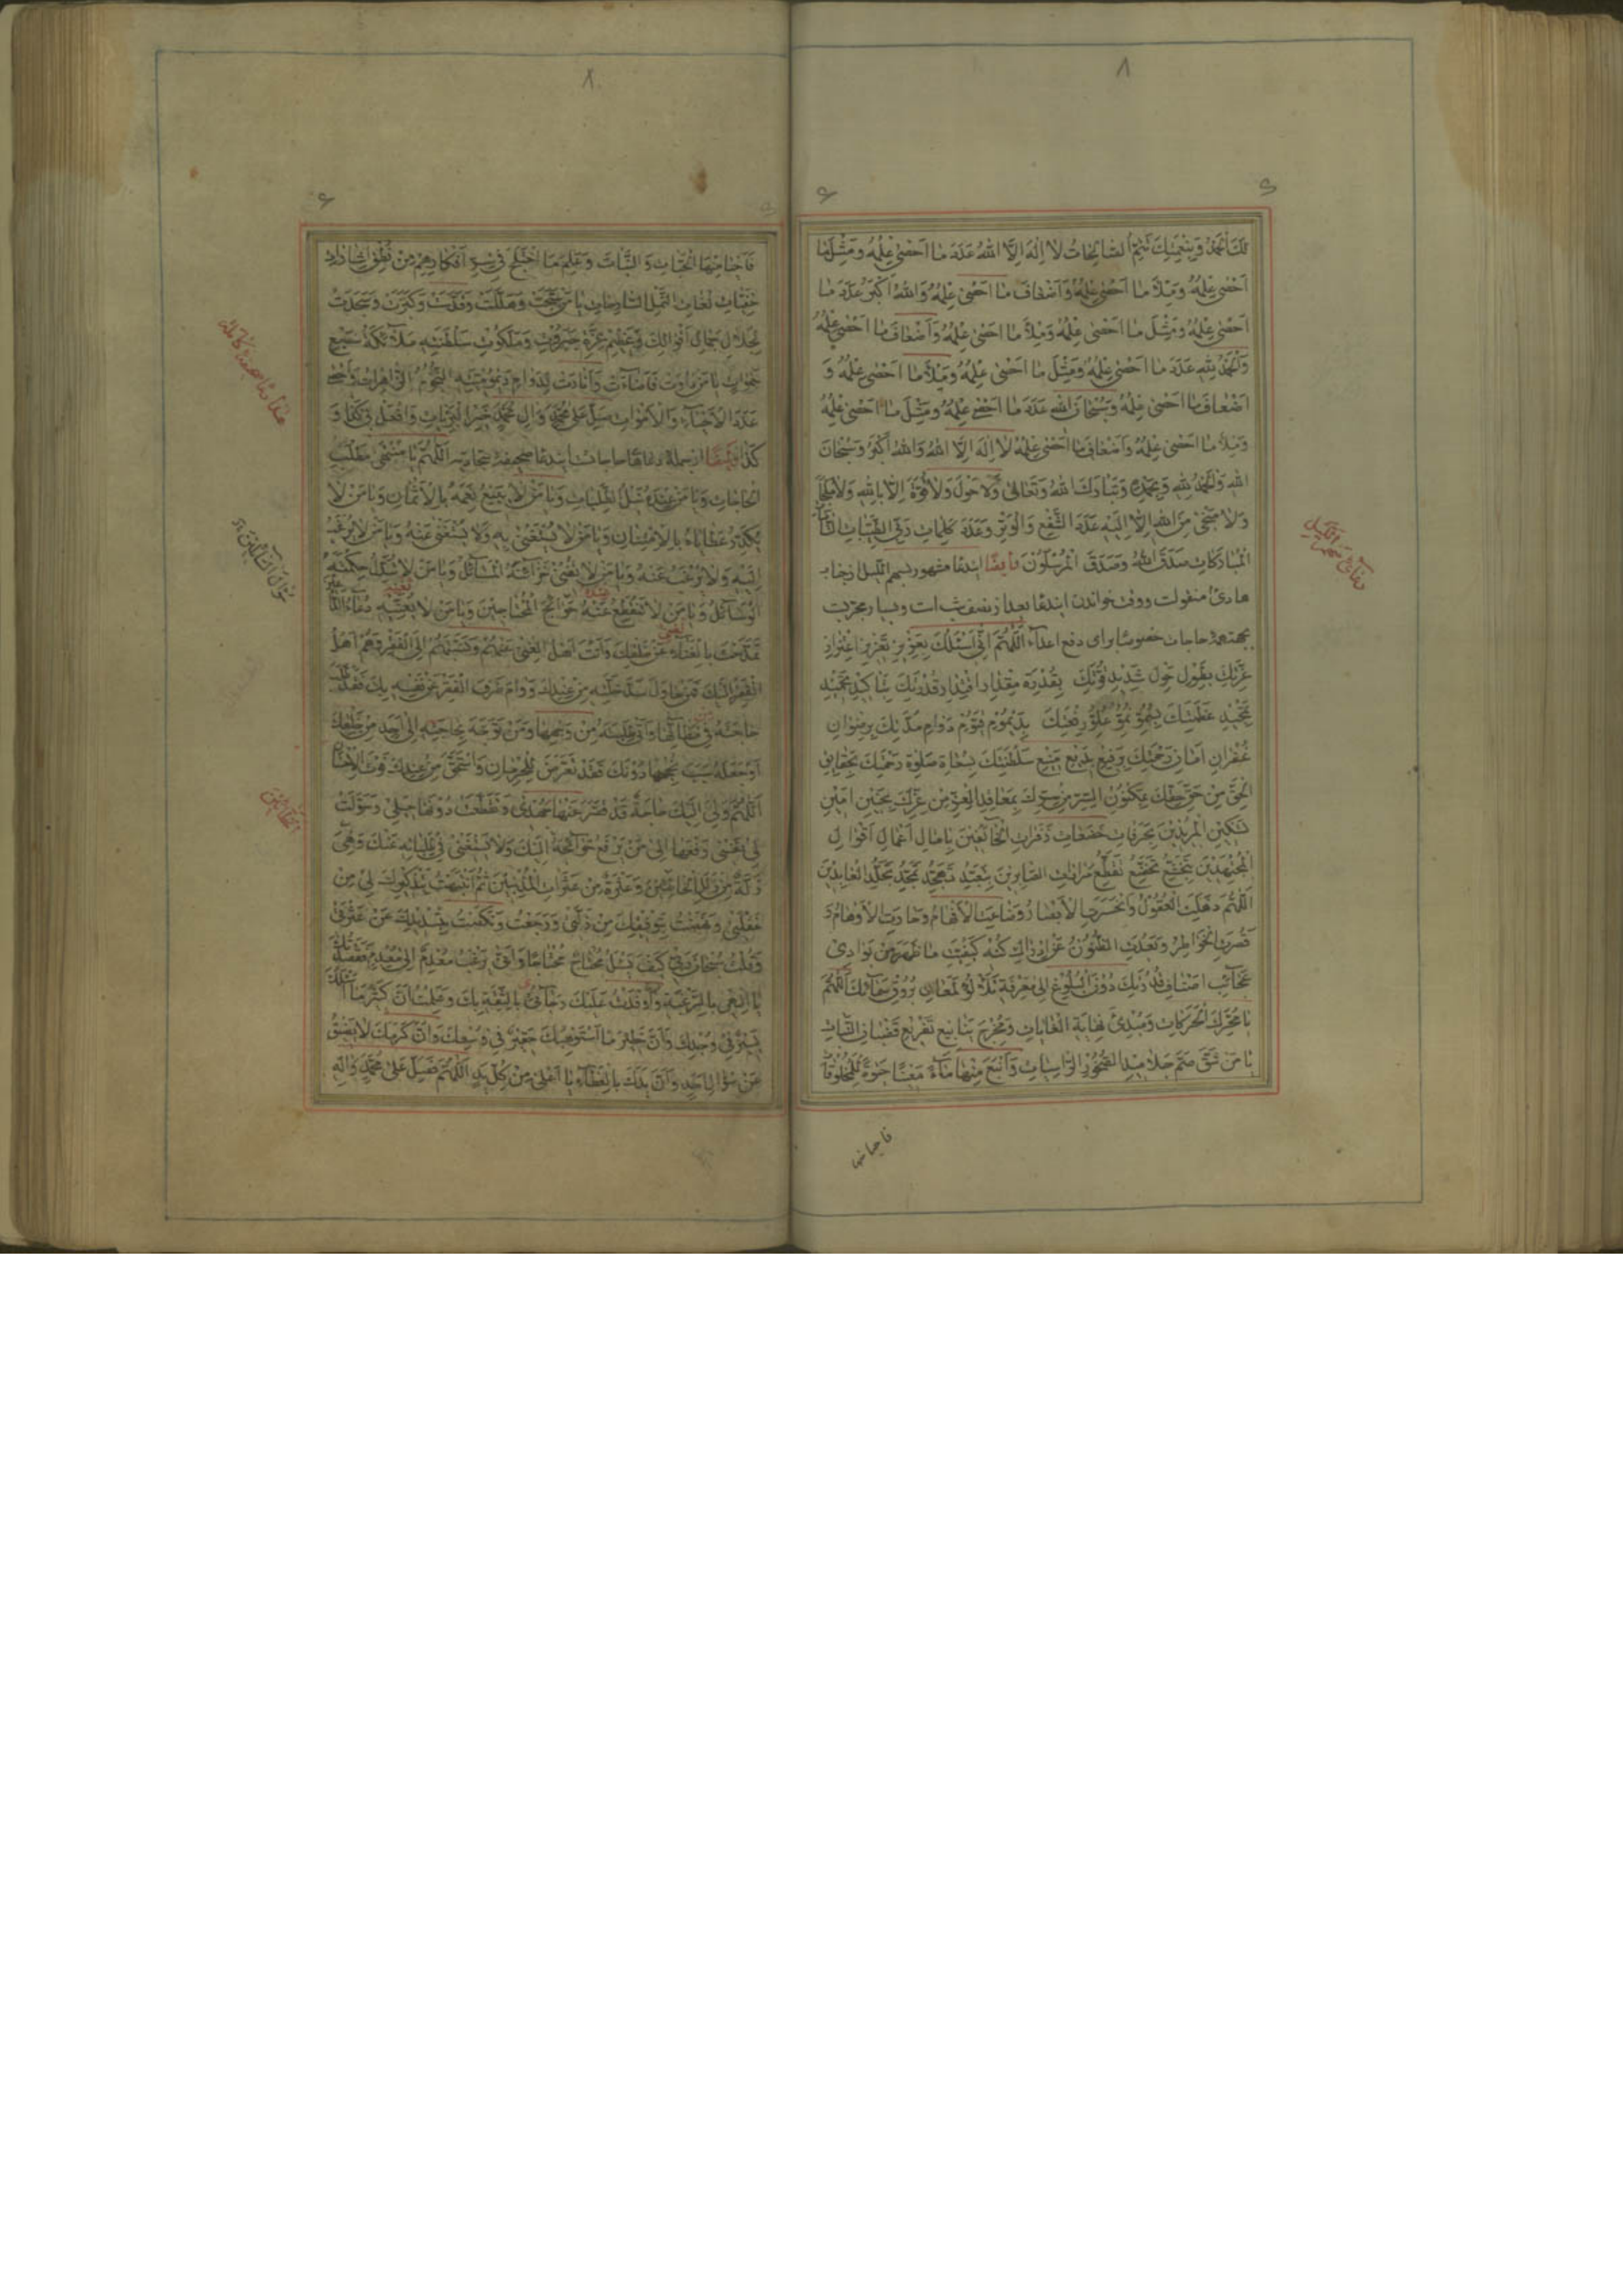 لَكَ الْحَمْدُ وَبِنِعْمَتِكَ تَتِمُّ الصَّالِحَاتُ لَا اِلٰهَ اِلَّا اللّٰهُ عَدَدَ مَا اَحْصٰى عِلْمُهُ وَمِثْلَ مَا
اَحْصٰى عِلْمُهُ وَمِلْأَ مَا اَحْصٰى عِلْمُهُ وَاَضْعَافَ مَا اَحْصٰى عِلْمُهُ وَاللّٰهُ اَكْبَرُ عَدَدَ مَا
اَحْصٰى عِلْمُهُ وَمِثْلَ مَا اَحْصٰى عِلْمُهُ وَمِلْأَ مَا اَحْصٰى عِلْمُهُ وَاَضْعَافَ مَا اَحْصٰى عِلْمُهُ
وَالْحَمْدُ لِلّٰهِ عَدَدَ مَا اَحْصٰى عِلْمُهُ وَمِثْلَ مَا اَحْصٰى عِلْمُهُ وَمِلْأَ مَا اَحْصٰى عِلْمُهُ وَ
اَضْعَافَ مَا اَحْصٰى عِلْمُهُ وَسُبْحَانَ اللّٰهِ عَدَدَ مَا اَحْصٰى عِلْمُهُ وَمِثْلَ مَا اَحْصٰى عِلْمُهُ
وَمِلْأَ مَا اَحْصٰى عِلْمُهُ وَاَضْعَافَ مَا اَحْصٰى عِلْمُهُ لَا اِلٰهَ اِلَّا اللّٰهُ وَاللّٰهُ اَكْبَرُ وَسُبْحَانَ
اللّٰهِ وَالْحَمْدُ لِلّٰهِ وَبِحَمْدِهِ وَتَبَارَكَ اللّٰهُ وَتَعَالٰى وَلَا حَوْلَ وَلَا قُوَّةَ اِلَّا بِاللّٰهِ وَلَا مَلْجَأَ
وَلَا مَنْجٰى مِنَ اللّٰهِ اِلَّا اِلَيْهِ عَدَدَ الشَّفْعِ وَالْوَتْرِ وَعَدَدَ كَلِمَاتِ رَبِّيَ الطَّيِّبَاتِ التَّامَّاتِ
الْمُبَارَكَاتِ صَدَقَ اللّٰهُ وَصَدَقَ الْمُرْسَلُونَ وايضا ايندعا مشهور بسهم الليل از جناب
هادى منقولست ووقت خواندن ايندعا بعد از نصف شب است وبسيار مجربست
بجهة همه حاجات خصوصا براى دفع اعداء اَللّٰهُمَّ اِنِّى اَسْئَلُكَ بِعَزِيزِ تَعْزِيزِ اعْتِزَازِ
عِزَّتِكَ بِطَوْلِ حَوْلِ شَدِيدِ قُوَّتِكَ بِقُدْرَةِ مِقْدَارِ اقْتِدَارِ قُدْرَتِكَ بِتَاكِيدِ تَحْمِيدِ
تَمْجِيدِ عَظَمَتِكَ بِسُمُوِّ نُمُوِّ عُلُوِّ رِفْعَتِكَ بِدَيْمُومِ قَيُّومِ دَوَامِ مُدَّتِكَ بِرِضْوَانِ
غُفْرَانِ اَمَانِ رَحْمَتِكَ بِرَفِيعِ بَدِيعِ مَنِيعِ سَلْطَنَتِكَ بِسُعَاةِ صَلٰوةِ رَحْمَتِكَ بِحَقَايِقِ
الْحَقِّ مِنْ حَقِّ حَقِّكَ بِمَكْنُونِ السِّرِّ مِنْ سِرِّكَ بِمَعَاقِدِ الْعِزِّ مِنْ عِزِّكَ بِحَنِينِ اَنِينِ
تَسْكِينِ الْمُرِيدِينَ بِحَرَقَاتِ خَضَعَاتِ زَفَرَاتِ الْخَائِفِينَ بِاٰمَالِ اَعْمَالِ اَقْوَالِ
الْمُجْتَهِدِينَ بِتَخَشُّعِ تَخَضُّعِ تَقَطُّعِ مَرَارَاتِ الصَّابِرِينَ بِتَعَبُّدِ تَهَجُّدِ تَمَجُّدِ تَجَلُّدِ الْعَابِدِينَ
اَللّٰهُمَّ ذَهَلَتِ الْعُقُولُ وَانْحَسَرَتِ الْاَبْصَارُ وَضَاعَتِ الْاَفْهَامُ وَحَارَتِ الْاَوْهَامُ وَ
قَصُرَتِ الْخَوَاطِرُ وَبَعُدَتِ الظُّنُونُ عَنْ اِدْرَاكِ كُنْهِ كَيْفِيَّةِ مَا ظَهَرَ مِنْ بَوَادِى
عَجَائِبِ اَصْنَافِ قُدْرَتِكَ دُونَ الْبُلُوغِ اِلٰى مَعْرِفَةِ تَلَأْلُؤِ لَمَعَانِ بُرُوقِ سَمَائِكَ اَللّٰهُمَّ
يَا مُحَرِّكَ الْحَرَكَاتِ وَمُبْدِئَ نِهَايَةِ الْغَايَاتِ وَمُخْرِجَ يَنَابِيعِ تَفْرِيعِ قُضْبَانِ النَّبَاتِ
يَا مَنْ شَقَّ صُمَّ جَلَامِيدِ الصُّخُورِ الرَّاسِيَاتِ وَاَنْبَعَ مِنْهَا مَاءً مَعِينًا حَيٰوةً لِلْمَخْلُوقَاتِ
دعاى سهم الليل
فاحيا منها
فَاَحْيَا مِنْهَا الْحَيَوَانَ وَ النَّبَاتَ وَعَلِمَ مَا اخْتَلَجَ فِى سِرِّ اَفْكَارِهِمْ مِنْ نُطْقِ اِشَارَاتِ
خَفِيَّاتِ لُغَاتِ النَّمْلِ السَّارِحَاتِ يَا مَنْ سَبَّحَتْ وَهَلَّلَتْ وَقَدَّسَتْ وَكَبَّرَتْ وَسَجَدَتْ
لِجَلَالِ جَمَالِ اَقْوَالِكَ وَعَظِيمِ عِزَّةِ جَبَرُوتِ وَمَلَكُوتِ سَلْطَنَتِهِ مَلَائِكَةُ سَبْعِ
سَمٰوَاتٍ يَا مَنْ دَارَتْ فَاَضَاءَتْ وَاَنَارَتْ لِدَوَامِ دَيْمُومِيَّتِهِ النُّجُومُ الزَّاهِرَاتُ وَاَحْصٰى
عَدَدَ الْاَحْيَاءِ وَالْاَمْوَاتِ صَلِّ عَلٰى مُحَمَّدٍ وَاٰلِ مُحَمَّدٍ خَيْرِ الْبَرِيَّاتِ وَافْعَلْ بِى كَذَا وَ
كَذَا وايضا از جملهٔ دعاها حاجات ايندعا صحيفهٔ سجاديه اَللّٰهُمَّ يَا مُنْتَهٰى مَطْلَبِ
الْحَاجَاتِ وَيَا مَنْ عِنْدَهُ نَيْلُ الطَّلِبَاتِ وَيَا مَنْ لَا يَبِيعُ نِعَمَهُ بِالْاَثْمَانِ وَيَا مَنْ لَا
يُكَدِّرُ عَطَايَاهُ بِالْاِمْتِنَانِ وَيَا مَنْ لَا يُسْتَغْنٰى بِهِ وَلَا يُسْتَغْنٰى عَنْهُ وَيَا مَنْ لَا يُرْغَبُ
اِلَيْهِ وَلَا يُرْغَبُ عَنْهُ وَيَا مَنْ لَا يُفْنِى خَزَائِنَهُ الْمَسَائِلُ وَيَا مَنْ لَا يُبَدِّلُ حِكْمَتَهُ
الْوَسَائِلُ وَيَا مَنْ لَا تَنْقَطِعُ عَنْهُ حَوَائِجُ الْمُحْتَاجِينَ وَيَا مَنْ لَا يُعَنِّيهِ دُعَاءُ الدَّاعِينَ
تَمَدَّحْتَ بِالْغَنَاءِ عَنْ خَلْقِكَ وَاَنْتَ اَهْلُ الْغِنٰى عَنْهُمْ وَنَسَبْتَهُمْ اِلَى الْفَقْرِ وَهُمْ اَهْلُ
الْفَقْرِ اِلَيْكَ فَمَنْ حَاوَلَ سَدَّ خَلَّتِهِ مِنْ عِنْدِكَ وَرَامَ صَرْفَ الْفَقْرِ عَنْ نَفْسِهِ بِكَ فَقَدْ طَلَبَ
حَاجَتَهُ فِى مَظَانِّهَا وَاَتٰى طَلِبَتَهُ مِنْ وَجْهِهَا وَمَنْ تَوَجَّهَ بِحَاجَتِهِ اِلٰى اَحَدٍ مِنْ خَلْقِكَ
اَوْ جَعَلَهُ سَبَبَ نُجْحِهَا دُونَكَ فَقَدْ تَعَرَّضَ لِلْحِرْمَانِ وَاسْتَحَقَّ مِنْ عِنْدِكَ فَوْتَ الْاِحْسَانِ
اَللّٰهُمَّ وَلِى اِلَيْكَ حَاجَةٌ قَدْ قَصَّرَ عَنْهَا جُهْدِى وَتَقَطَّعَتْ دُونَهَا حِيَلِى وَسَوَّلَتْ
لِى نَفْسِى رَفْعَهَا اِلٰى مَنْ يَرْفَعُ حَوَائِجَهُ اِلَيْكَ وَلَا يَسْتَغْنِى فِى طَلِبَاتِهِ عَنْكَ وَهِىَ
زَلَّةٌ مِنْ زَلَلِ الْخَاطِئِينَ وَعَثْرَةٌ مِنْ عَثَرَاتِ الْمُذْنِبِينَ ثُمَّ انْتَبَهْتُ بِتَذْكِيرِكَ لِى مِنْ
غَفْلَتِى وَنَهَضْتُ بِتَوْفِيقِكَ مِنْ زَلَّتِى وَرَجَعْتُ وَنَكَصْتُ بِتَسْدِيدِكَ عَنْ عَثْرَتِى
وَقُلْتُ سُبْحَانَ رَبِّى كَيْفَ يَسْئَلُ مُحْتَاجٌ مُحْتَاجًا وَاَنّٰى يَرْغَبُ مُعْدِمٌ اِلٰى مُعْدِمٍ فَقَصَدْتُكَ
يَا اِلٰهِى بِالرَّغْبَةِ وَاَوْفَدْتُ عَلَيْكَ رَجَائِى بِالثِّقَةِ بِكَ وَعَلِمْتُ اَنَّ كَثِيرَ مَا اَسْئَلُكَ
يَسِيرٌ فِى وُجْدِكَ وَاَنَّ خَطِيرَ مَا اَسْتَوْهِبُكَ حَقِيرٌ فِى وُسْعِكَ وَاَنَّ كَرَمَكَ لَا يَضِيقُ
عَنْ سُؤَالِ اَحَدٍ وَاَنَّ يَدَكَ بِالْعَطَاءِ يَا اَعْلٰى مِنْ كُلِّ يَدٍ اَللّٰهُمَّ فَصَلِّ عَلٰى مُحَمَّدٍ وَاٰلِهِ